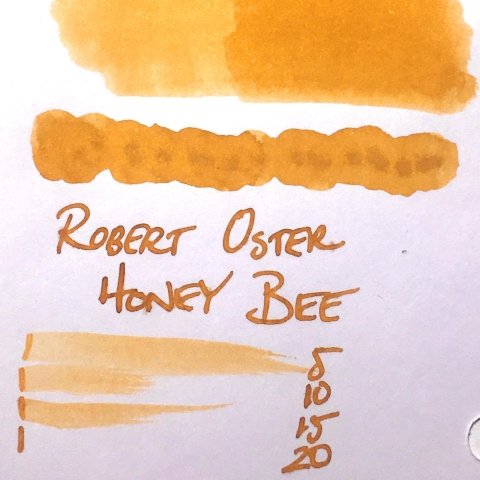 ROBERT OSTER
HONEY BEE
5
10
15
20